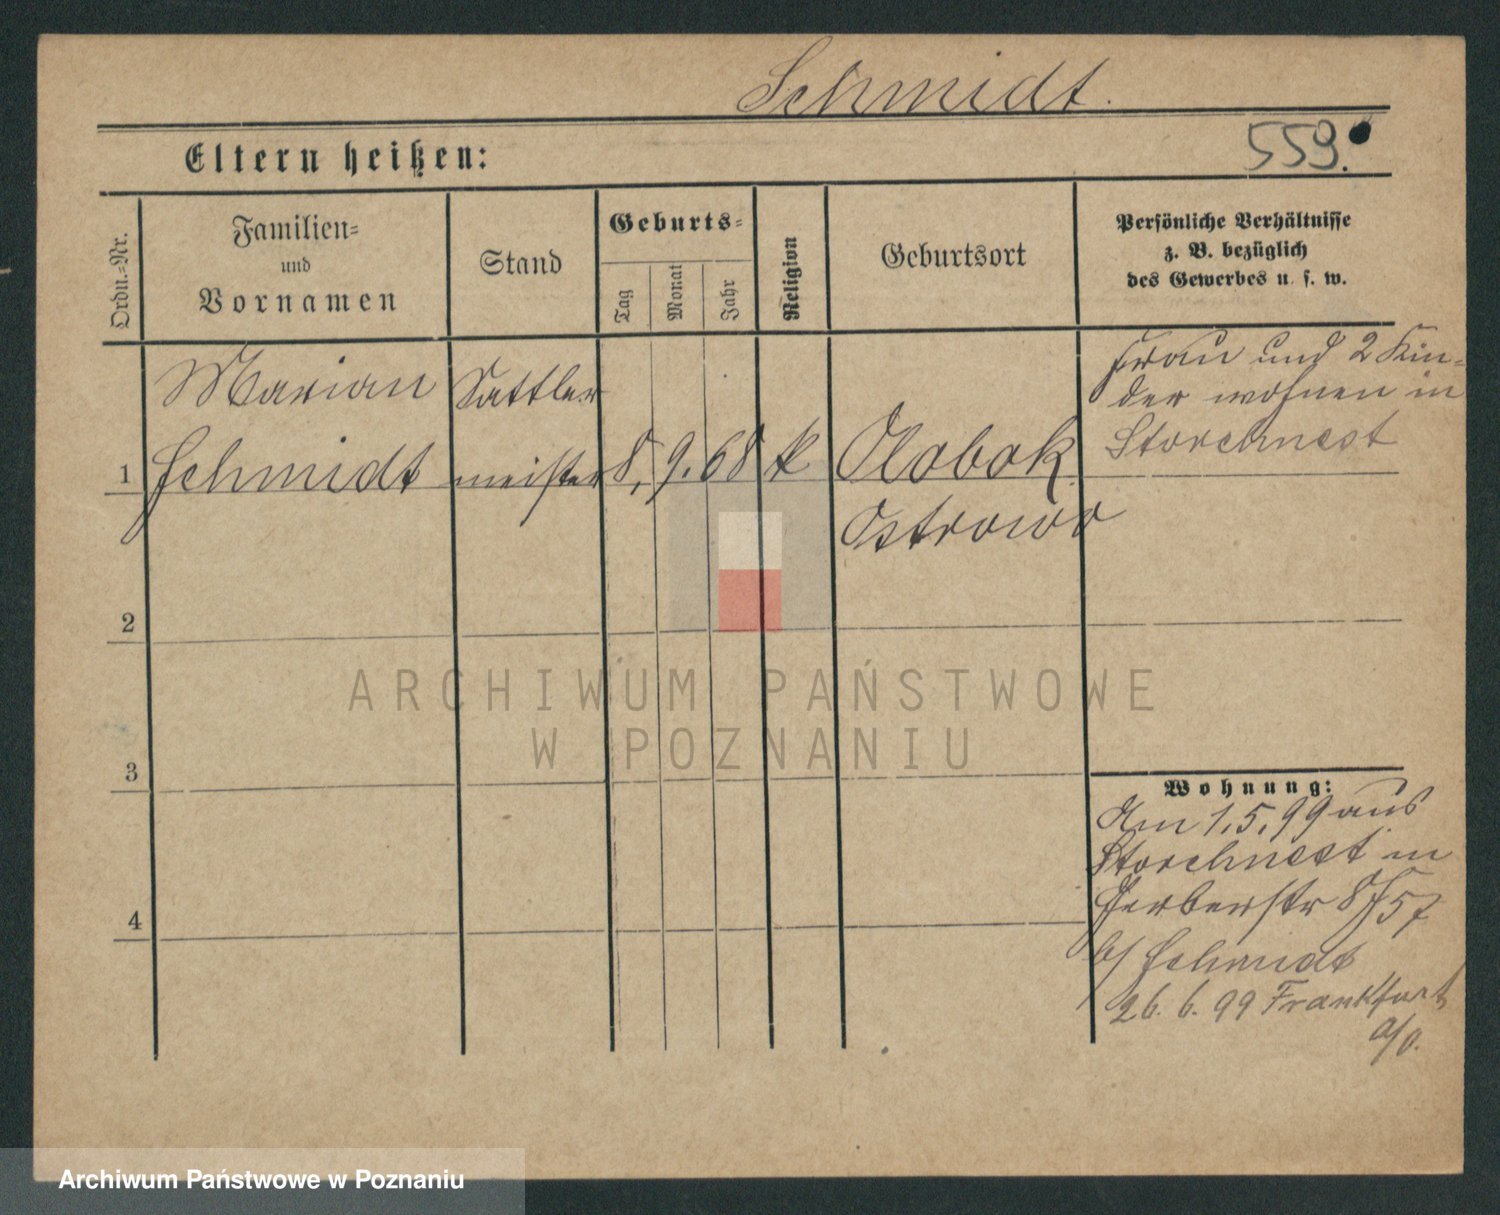 Schmidt.
559.
Eltern heißen:
Ordn.=Nr.
Familien=
und
Vornamen
Stand
Geburts=
Tag
Monat
Jahr
Religion
Geburtsort
Persönliche Verhältnisse
z. B. bezüglich
des Gewerbes u. s. w.
1
Marian
Schmidt
Sattler
meister
8. 9. 68
k
Olobok
Ostrowo
Frau und 2 Kin-
der wohnen in
Storchnest
2
3
4
Wohnung:
Am 1.5.99 aus
Storchnest in
Gerberstr
b/ Schmidt
26. 6. 99 Frankfurt
a/O.
ARCHIWUM PAŃSTWOWE
W POZNANIU
Archiwum Państwowe w Poznaniu